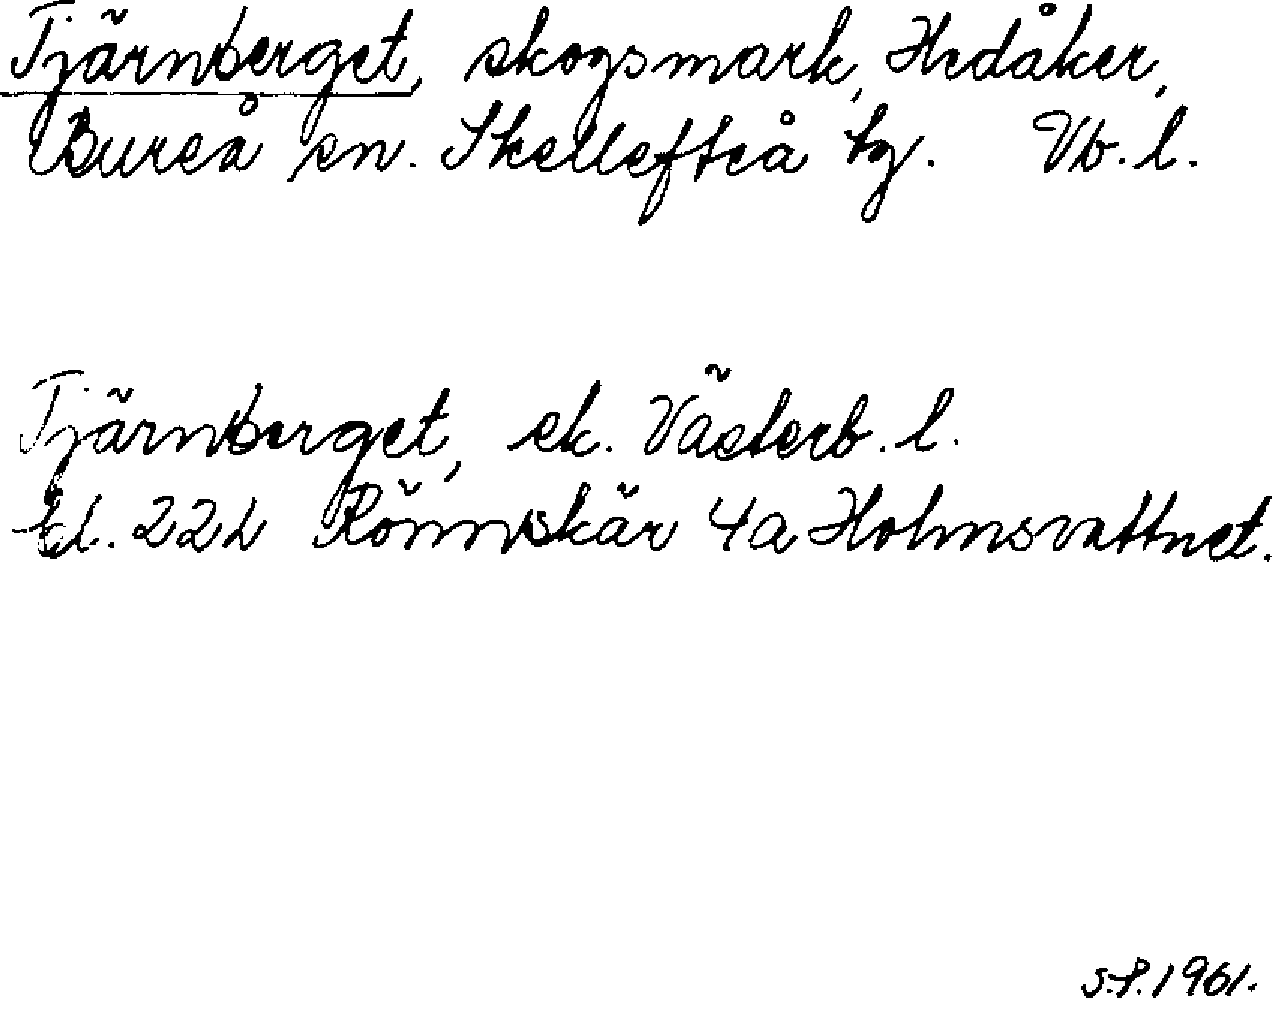 Tjärnberget, skogsmark, Hedåker,
Bureå sn. Skellefteå tg. Vb. l.
Tjärnberget, ek. Västerb. l.
bl. 22L Rönnskär 4a Holmsvattnet.
S.P. 1961.